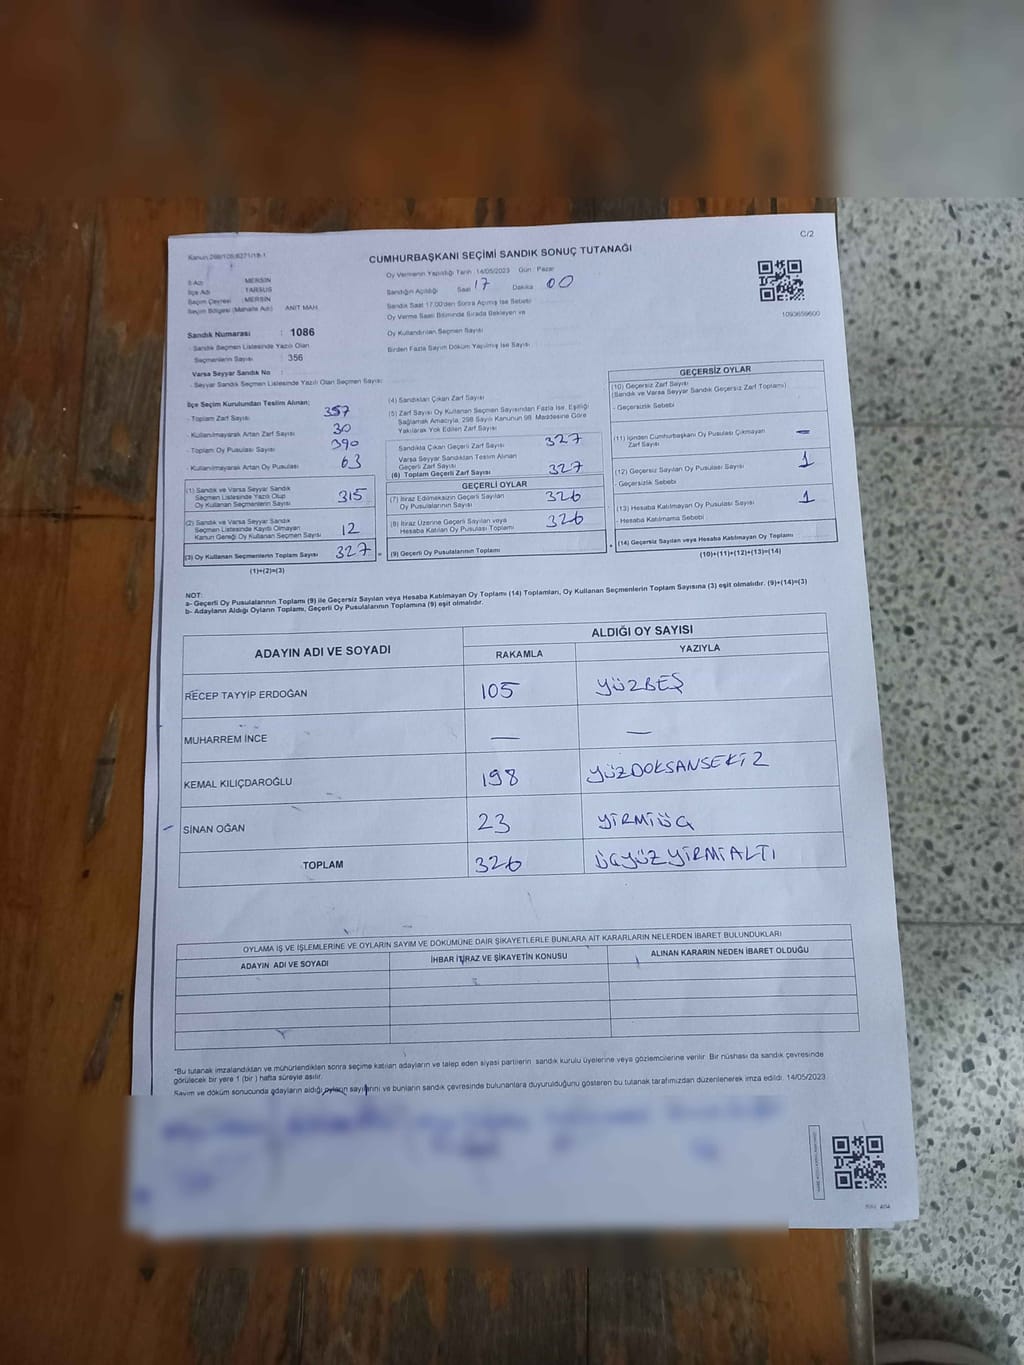 C/2
Kanun:298/105;6271/18-1
CUMHURBAŞKANI SEÇİMİ SANDIK SONUÇ TUTANAĞI
İl Adı : MERSİN
İlçe Adı : TARSUS
Seçim Çevresi : MERSİN
Seçim Bölgesi (Mahalle Adı) : ANIT MAH.
Oy Vermenin Yapıldığı Tarih :14/05/2023 Gün : Pazar
Sandığın Açıldığı Saat 17 Dakika 00
Sandık Saat 17.00'den Sonra Açılmış İse Sebebi
Oy Verme Saati Bitiminde Sırada Bekleyen ve
Oy Kullandırılan Seçmen Sayısı
Birden Fazla Sayım Döküm Yapılmış İse Sayısı
1093659600
Sandık Numarası : 1086
- Sandık Seçmen Listesinde Yazılı Olan
Seçmenlerin Sayısı : 356
Varsa Seyyar Sandık No :
- Seyyar Sandık Seçmen Listesinde Yazılı Olan Seçmen Sayısı
İlçe Seçim Kurulundan Teslim Alınan;
- Toplam Zarf Sayısı 357
- Kullanılmayarak Artan Zarf Sayısı 30
- Toplam Oy Pusulası Sayısı 390
- Kullanılmayarak Artan Oy Pusulası 63
(1) Sandık ve Varsa Seyyar Sandık
Seçmen Listesinde Yazılı Olup
Oy Kullanan Seçmenlerin Sayısı 315
(2) Sandık ve Varsa Seyyar Sandık
Seçmen Listesinde Kayıtlı Olmayan
Kanun Gereği Oy Kullanan Seçmen Sayısı 12
(3) Oy Kullanan Seçmenlerin Toplam Sayısı 327 =
(1)+(2)=(3)
(4) Sandıktan Çıkan Zarf Sayısı
(5) Zarf Sayısı Oy Kullanan Seçmen Sayısından Fazla İse, Eşitliği
Sağlamak Amacıyla, 298 Sayılı Kanunun 98. Maddesine Göre
Yakılarak Yok Edilen Zarf Sayısı
Sandıkta Çıkan Geçerli Zarf Sayısı 327
Varsa Seyyar Sandıktan Teslim Alınan
Geçerli Zarf Sayısı
(6) Toplam Geçerli Zarf Sayısı 327
GEÇERLİ OYLAR
(7) İtiraz Edilmeksizin Geçerli Sayılan
Oy Pusulasının Sayısı 326
(8) İtiraz Üzerine Geçerli Sayılan veya
Hesaba Katılan Oy Pusulası Toplamı 326
(9) Geçerli Oy Pusulalarının Toplamı +
GEÇERSİZ OYLAR
(10) Geçersiz Zarf Sayısı
(Sandık ve Varsa Seyyar Sandık Geçersiz Zarf Toplamı)
- Geçersizlik Sebebi
(11) İçinden Cumhurbaşkanı Oy Pusulası Çıkmayan
Zarf Sayısı —
(12) Geçersiz Sayılan Oy Pusulası Sayısı 1
- Geçersizlik Sebebi
(13) Hesaba Katılmayan Oy Pusulası Sayısı 1
- Hesaba Katılmama Sebebi
(14) Geçersiz Sayılan veya Hesaba Katılmayan Oy Toplamı
(10)+(11)+(12)+(13)=(14)
NOT:
a- Geçerli Oy Pusulalarının Toplamı (9) ile Geçersiz Sayılan veya Hesaba Katılmayan Oy Toplamı (14) Toplamları, Oy Kullanan Seçmenlerin Toplam Sayısına (3) eşit olmalıdır. (9)+(14)=(3)
b- Adayların Aldığı Oyların Toplamı, Geçerli Oy Pusulalarının Toplamına (9) eşit olmalıdır.
ADAYIN ADI VE SOYADI ALDIĞI OY SAYISI
RAKAMLA YAZIYLA
RECEP TAYYİP ERDOĞAN 105 YÜZBEŞ
MUHARREM İNCE — —
KEMAL KILIÇDAROĞLU 198 YÜZDOKSANSEKİZ
SİNAN OĞAN 23 YİRMİÜÇ
TOPLAM 326 ÜÇYÜZYİRMİALTI
OYLAMA İŞ VE İŞLEMLERİNE VE OYLARIN SAYIM VE DÖKÜMÜNE DAİR ŞİKAYETLERLE BUNLARA AİT KARARLARIN NELERDEN İBARET BULUNDUKLARI
ADAYIN ADI VE SOYADI İHBAR İTİRAZ VE ŞİKAYETİN KONUSU ALINAN KARARIN NEDEN İBARET OLDUĞU
*Bu tutanak imzalandıktan ve mühürlendikten sonra seçime katılan adayların ve talep eden siyasi partilerin sandık kurulu üyelerine veya gözlemcilerine verilir. Bir nüshası da sandık çevresinde
görülecek bir yere 1 (bir ) hafta süreyle asılır.
Sayım ve döküm sonucunda adayların aldığı oyların sayılarını ve bunların sandık çevresinde bulunanlara duyurulduğunu gösteren bu tutanak tarafımızdan düzenlenerek imza edildi. 14/05/2023